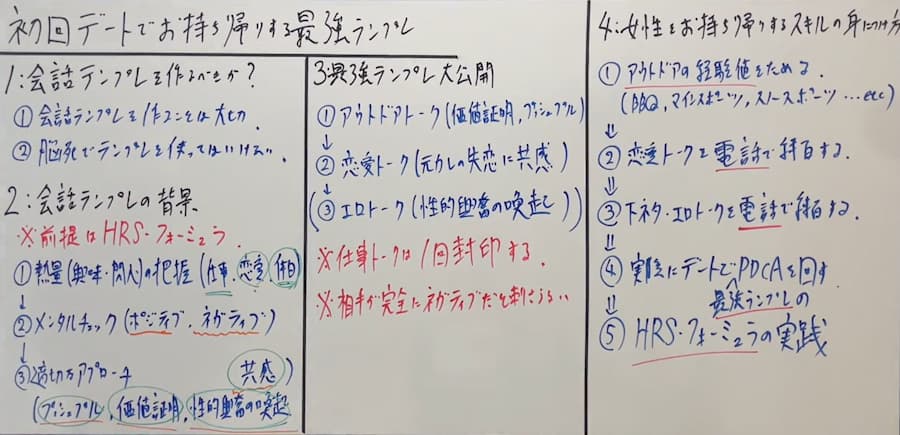 初回デートでお持ち帰りする最強テンプレ
1:会話テンプレを作るべきか?
①会話テンプレを作ることは大切.
②脳死でテンプレを使ってはいけない.
2:会話テンプレの背景
※前提はHRS・フォーミュラ.
①熱量(興味・関心)の把握(仕事,恋愛,休日)
↓
②メンタルチェック(ポジティブ,ネガティブ)
↓
③適切なアプローチ
(プッシュプル,価値証明,性的興奮の喚起
共感)
3:最強テンプレ大公開
①アウトドアトーク(価値証明,プッシュプル)
⇓
②恋愛トーク(元カレの失恋に共感)
⇓
(③エロトーク(性的興奮の喚起))
※仕事トークは1回封印する.
※相手が完全にネガティブだと刺さらない
4:女性をお持ち帰りするスキルの身につけ方
①アウトドアの経験値をためる.
(BBQ,マインスポーツ,スノースポーツ…etc)
⇓
②恋愛トークを電話で練習する.
⇓
③下ネタ・エロトークを電話で練習する.
⇓
④実際にデートでPDCAを回す
最強テンプレの
⇓
⑤HRS・フォーミュラの実践